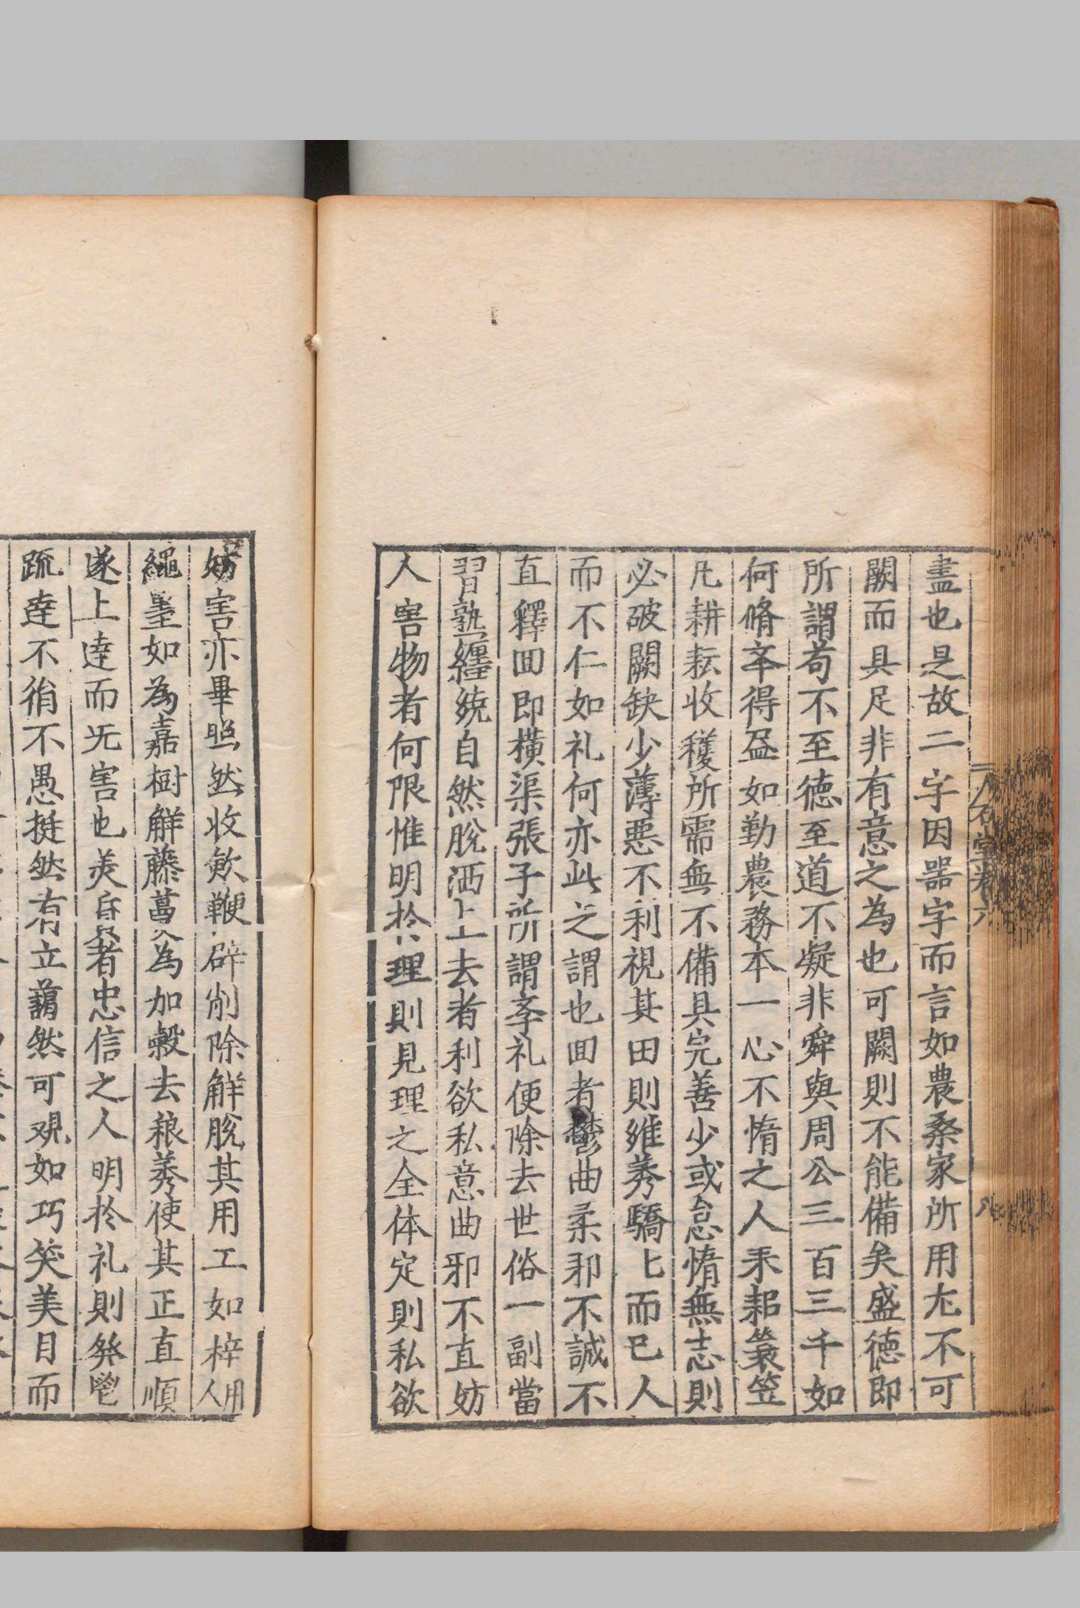 盡也是故二字因器字而言如農桑家所用尢不可
闕而具足非有意之為也可闕則不能備矣盛德即
所謂苟不至德至道不凝非舜與周公三百三千如
何脩卒得盈如勤農務本一心不惰之人耒耜蓑笠
凡耕耘收穫所需無不備具完善少或怠惰無志則
必破闕缺少薄惡不利視其田則維莠驕匕而已人
而不仁如礼何亦此之謂也回者欝曲柔邪不誠不
直釋回即橫渠張子所謂斈礼便除去世俗一副當
習熟纏繞自然脫洒上去者利欲私意曲邪不直妨
人害物者何限惟明於理則見理之全体定則私欲
妨害亦畢照然收斂鞭辟削除觧脫其用工如梓人用
繩墨如為嘉樹觧藤葛又為加穀去稂莠使其正直順
遂上達而旡害也美質者忠信之人明於礼則發鬯
疏達不徇不愚挺然有立藹然可观如巧笑美目而
石堂卷六